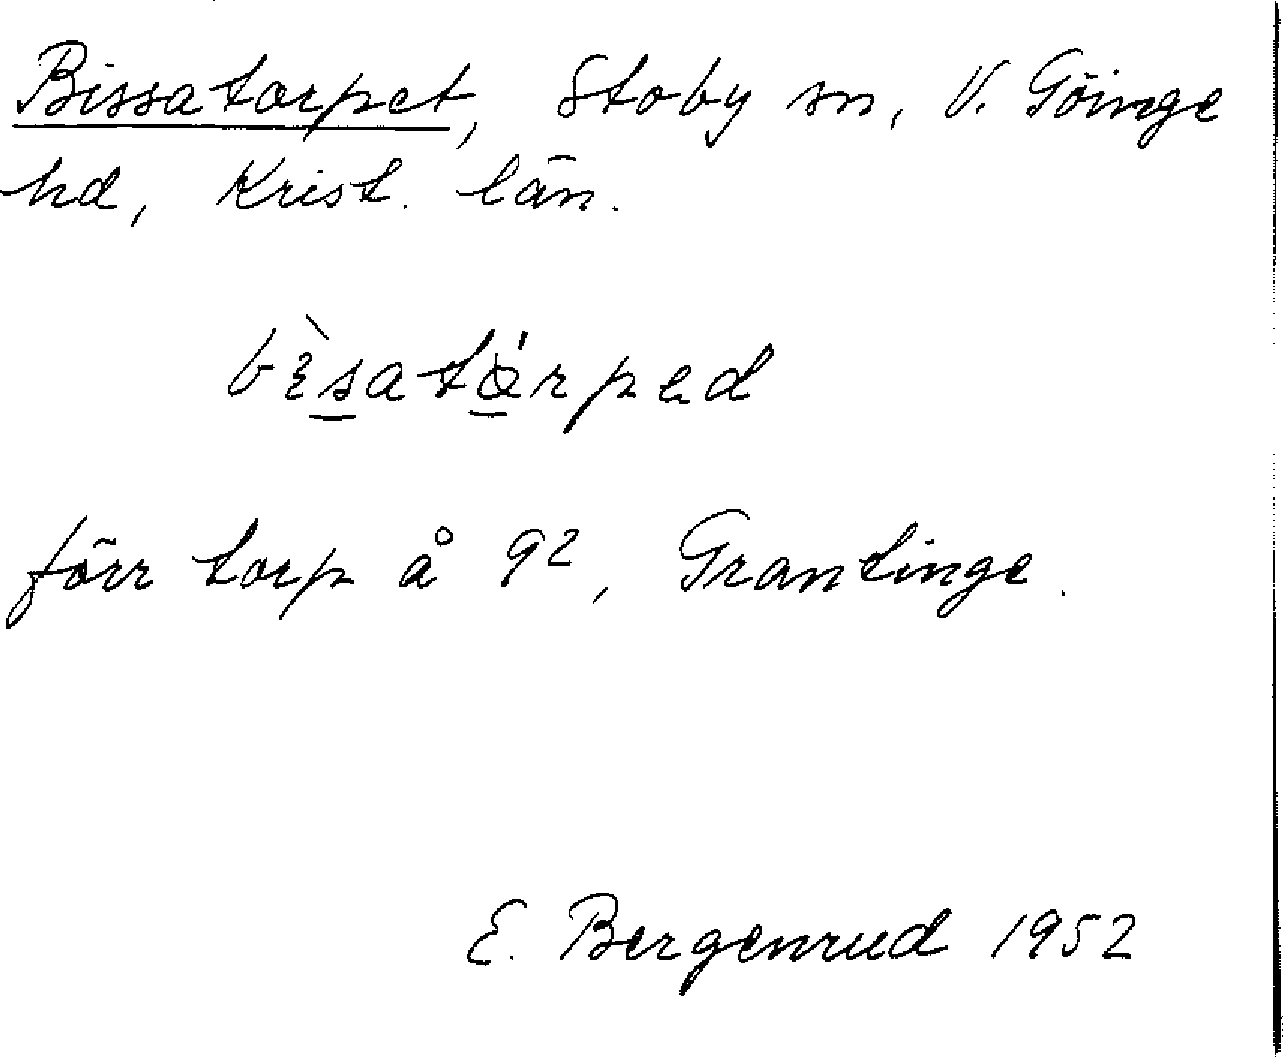 Bissatorpet, Stoby sn, V. Göinge
hd, Krist. län.
förr torp å 9², Grantinge.
E. Bergenrud 1952